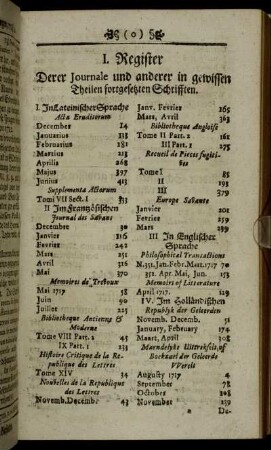 (o)
I. Register
Derer Journale und anderer in gewissen
Theilen fortgesetzten Schrifften.
I. In Lateinischer Sprache
Acta Eruditorum
December 14
Januarius 113
Februarius 181
Martius 213
Aprilis 268
Majus 397
Junius 413
Supplementa Actorum
Tomi VII Sect. I
II Im Frantzösischen
Journal des Savans
Decembre 30
Janvier 215
Fevrier 242
Mars 251
Avril
Mai 370
Memoires de Trevoux
Mai 1717 58
Juin 90
Juillet 225
Bibliotheque Ancienne &
Moderne
Tome VIII Part. 2 45
IX Part. 1 233
Histoire Critique de la Re-
publique des Lettres
Tome XIV 34
Nouvelles de la Republique
des Lettres
Novemb. Decembr. 43
Janv. Fevrier 265
Mars, Avril 363
Bibliotheque Angloise
Tome II Part. 2 161
III Part. 1 275
Recueil de Pieces fugiti-
ves
Tome I 85
II 193
III 379
Europe Savante
Janvier 201
Fevrier
Mars 259
III In Englischer
Sprache
Philosophical Transactions
N. 351. Jan. Febr. Mart. 1717 70
352. Apr. Mai, Jun. 153
Memoirs of Litterature
April 1717. 129
IV. Im Holländischen
Republyk der Geleerden
Novemb. Decemb. 51
January, February 174
Maart, April 308
Maendelyke Uittreksels, of
Boekzael der Geleerde
VVerelt
Augusty 1717 4
September 78
October 208
November 139
De-